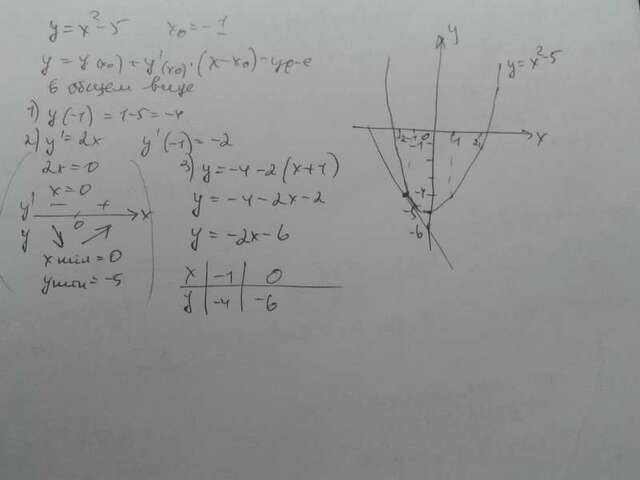 y = x² - 5    x₀ = -1
y = y(x₀) + y'(x₀) · (x - x₀) - ур-е
в общем виде
1) y(-1) = 1-5 = -4
2) y' = 2x    y'(-1) = -2
2x = 0
x = 0
y' - + x
0
y
x min = 0
y min = -5
3) y = -4 - 2(x+1)
y = -4 - 2x - 2
y = -2x - 6
x | -1 | 0
y | -4 | -6
y
y = x² - 5
-2 -1 0 1 2 x
-1
-4
-5
-6